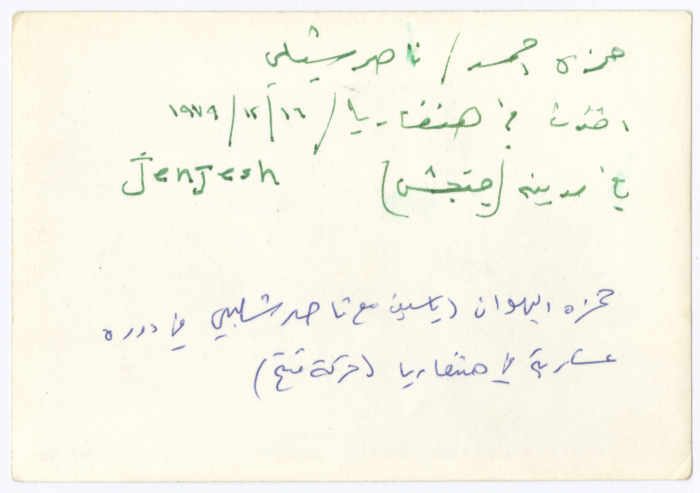 حمزه احمد / ناصر شلبي
اخذت في هنغاريا / ١٦/١٢/١٩٧٩
في مدينه (جنجش) Jenjesh
حمزه البهوان (ياسين مع ناصر شلبي في دوره
عسكرية في هنغاريا (حركة فتح)